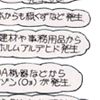 水からも額くずなど発生
建材や事務用品から
ホルムアルデヒド発生
OA機器などから
ゾン(O₃)が発生